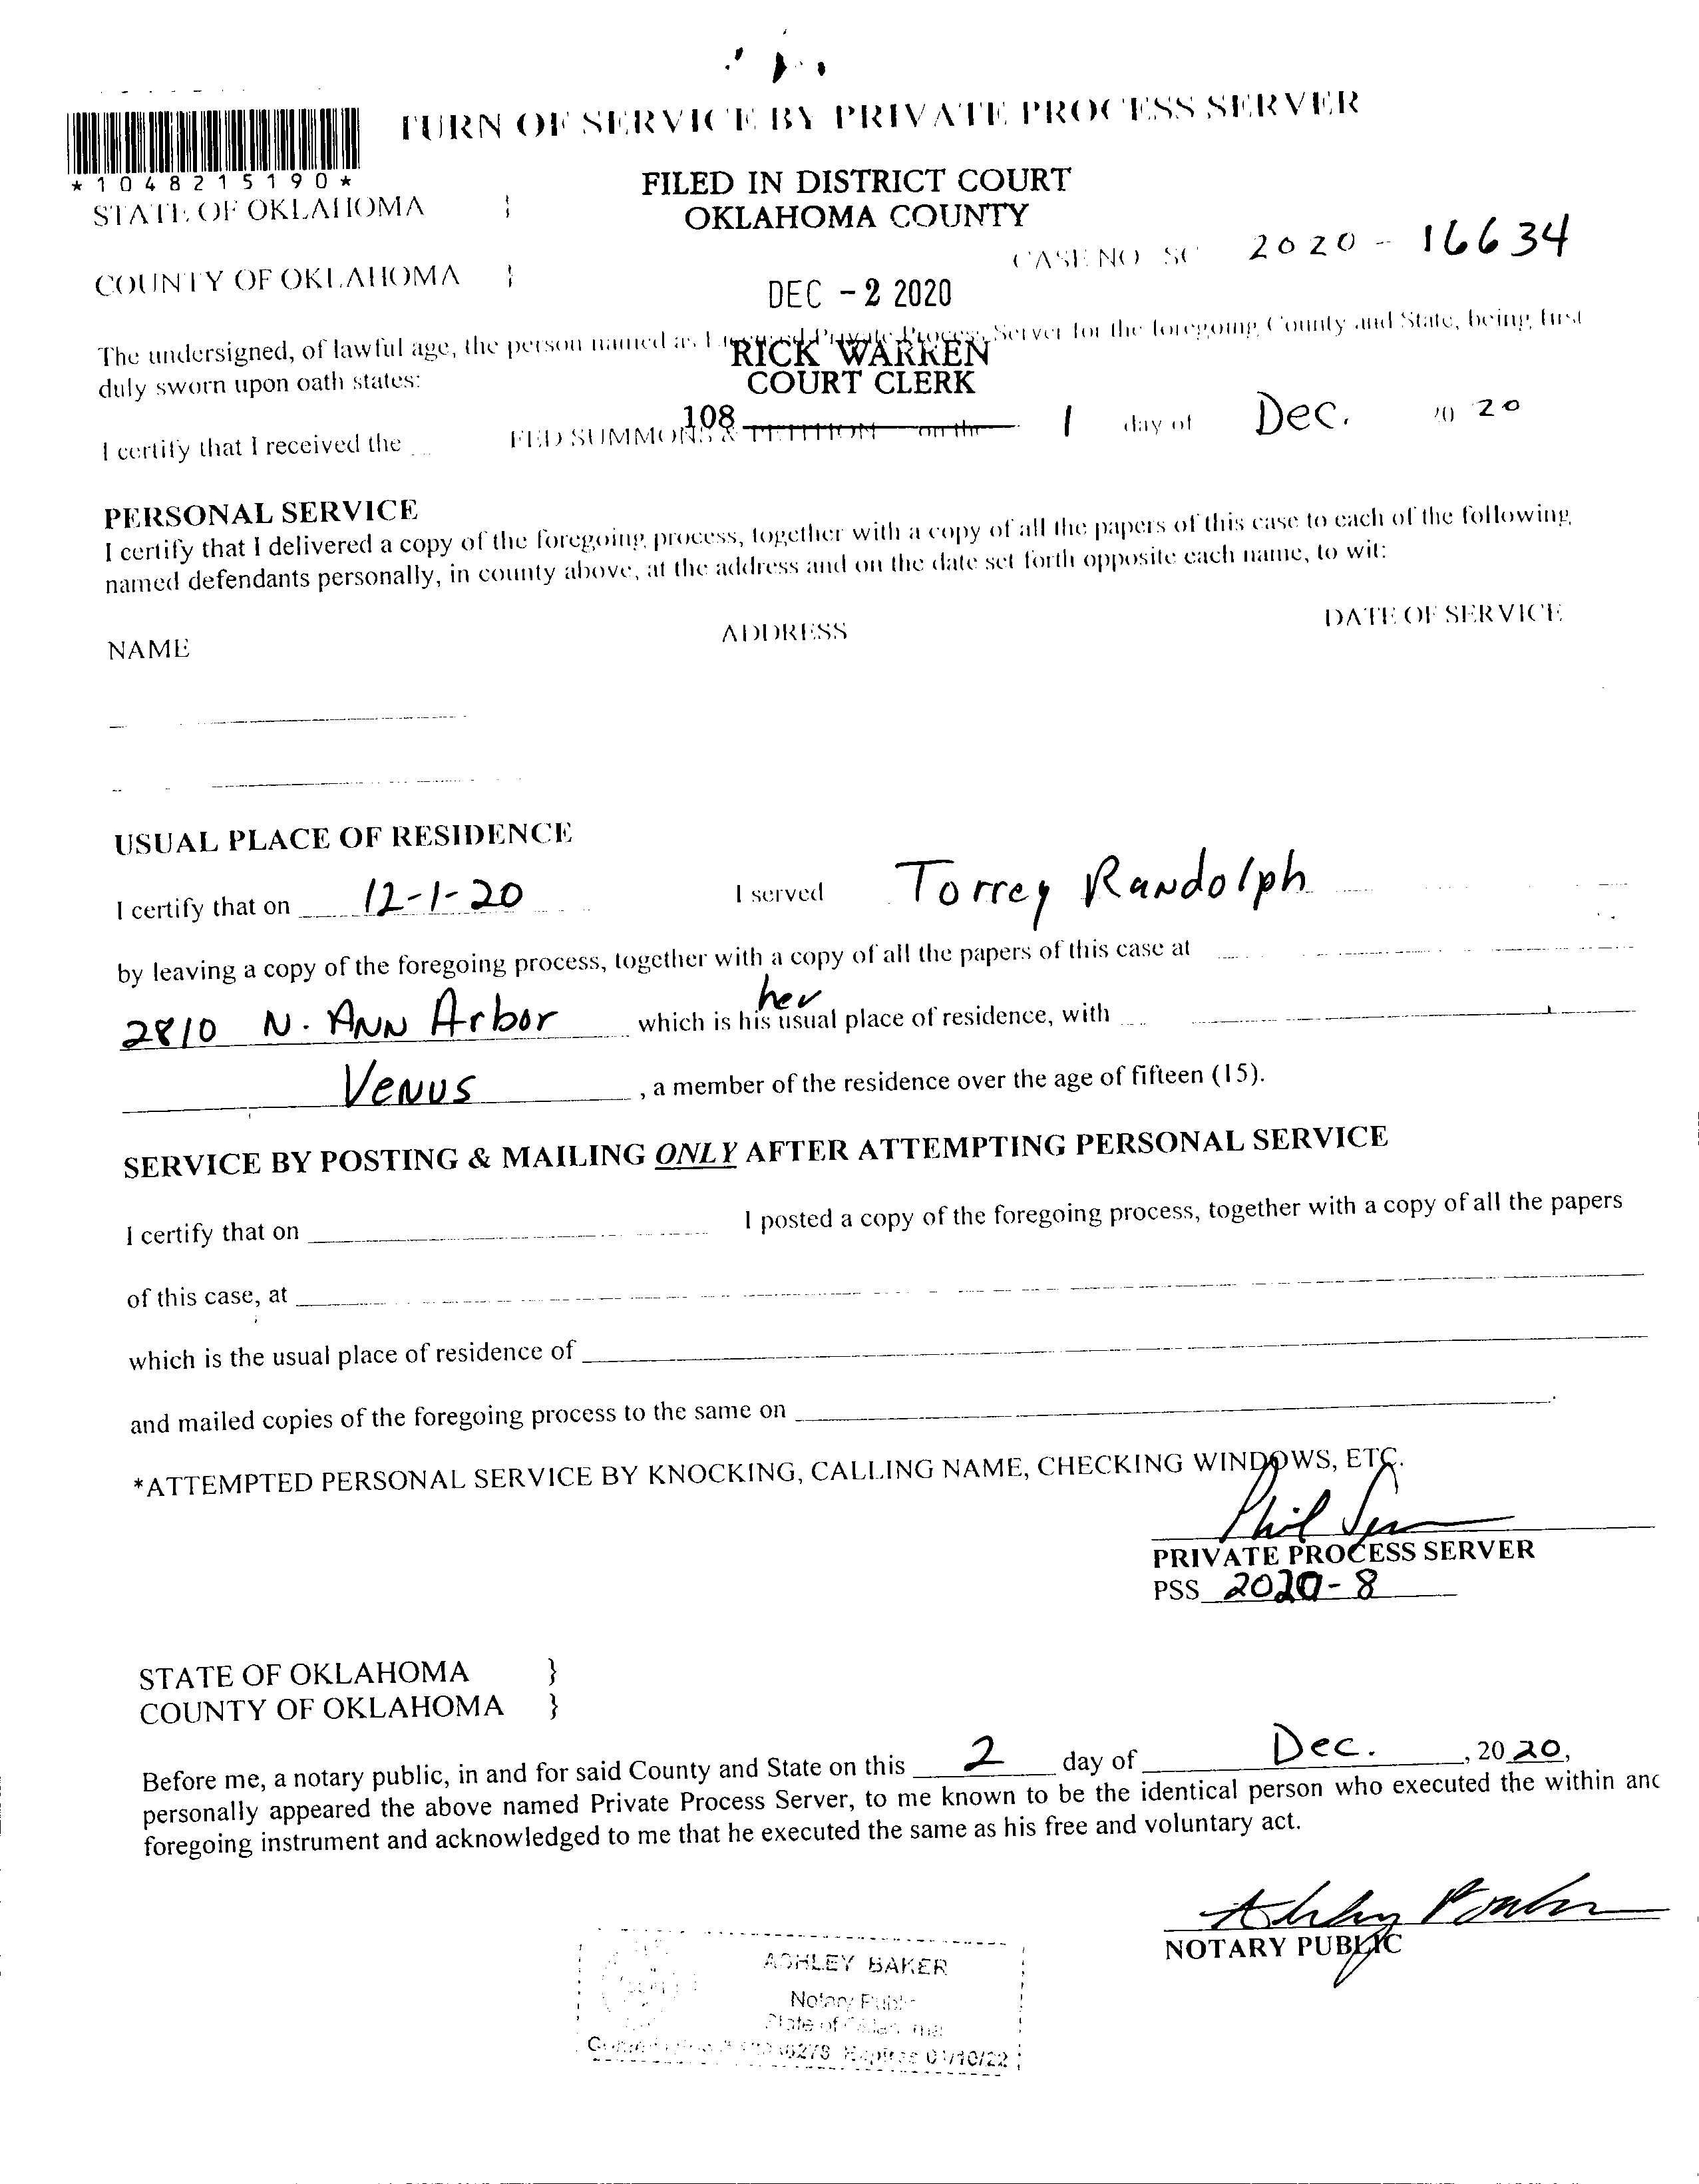 TURN OF SERVICE BY PRIVATE PROCESS SERVER
*1048215190*
FILED IN DISTRICT COURT
OKLAHOMA COUNTY
STATE OF OKLAHOMA }
CASE NO SC 2020 - 16634
COUNTY OF OKLAHOMA }
DEC - 2 2020
The undersigned, of lawful age, the person named as Licensed Private Process Server for the foregoing County and State, being first
RICK WARREN
duly sworn upon oath states:
COURT CLERK
108
I certify that I received the FED SUMMONS & PETITION on the 1 day of Dec. 20 20
PERSONAL SERVICE
I certify that I delivered a copy of the foregoing process, together with a copy of all the papers of this case to each of the following
named defendants personally, in county above, at the address and on the date set forth opposite each name, to wit:
NAME ADDRESS DATE OF SERVICE
USUAL PLACE OF RESIDENCE
I certify that on 12-1-20 I served Torrey Randolph
by leaving a copy of the foregoing process, together with a copy of all the papers of this case at
her
2810 N. ANN Arbor which is his usual place of residence, with
Venus , a member of the residence over the age of fifteen (15).
SERVICE BY POSTING & MAILING ONLY AFTER ATTEMPTING PERSONAL SERVICE
I certify that on I posted a copy of the foregoing process, together with a copy of all the papers
of this case, at
which is the usual place of residence of
and mailed copies of the foregoing process to the same on .
*ATTEMPTED PERSONAL SERVICE BY KNOCKING, CALLING NAME, CHECKING WINDOWS, ETC.
Phil
PRIVATE PROCESS SERVER
PSS 2020-8
STATE OF OKLAHOMA }
COUNTY OF OKLAHOMA }
Before me, a notary public, in and for said County and State on this 2 day of Dec. , 20 20,
personally appeared the above named Private Process Server, to me known to be the identical person who executed the within and
foregoing instrument and acknowledged to me that he executed the same as his free and voluntary act.
Ashley
NOTARY PUBLIC
ASHLEY BAKER
Notary Public
State of Oklahoma
Expires 01/10/22